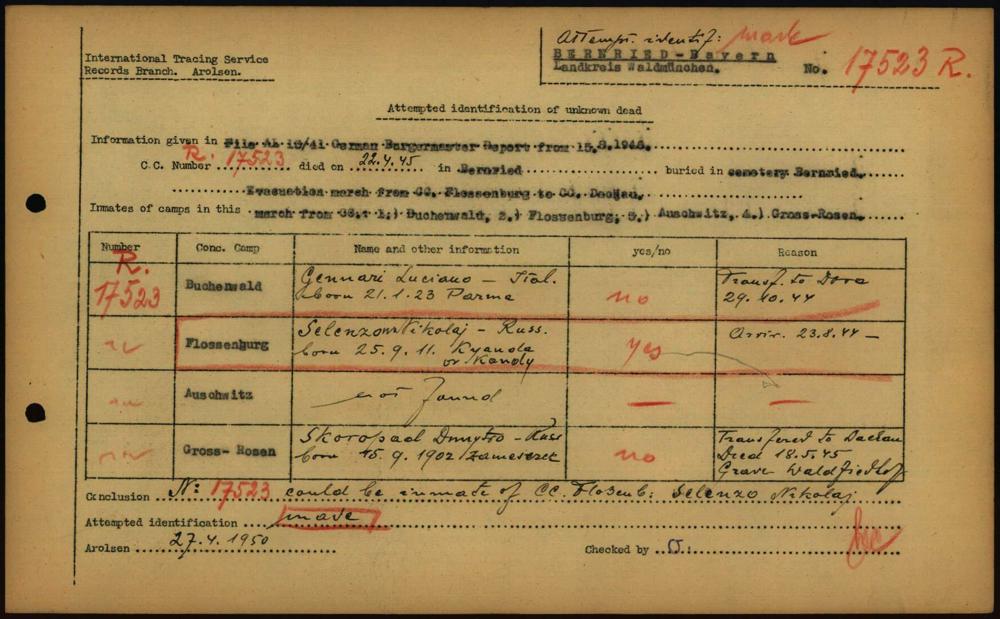 Attempt. identif: made
International Tracing Service
Records Branch. Arolsen.
BERNRIED-Bayern
Landkreis Waldmünchen.
No. 17523 R.
Attempted identification of unknown dead
Information given in File AL 10/41 German Burgermaster Report from 15.8.1946.
C.C. Number R. 17523 died on 22.4.45 in Bernried buried in cemetery Bernried.
Evacuation march from CC. Flossenburg to CC. Dachau.
Inmates of camps in this march from CC.: 1.) Buchenwald, 2.) Flossenburg, 3.) Auschwitz, 4.) Gross-Rosen.
Number Conc. Camp Name and other information yes/no Reason
R. 17523 Buchenwald Gennari Luciano - Ital. no Transf. to Dora
born 21.1.23 Parma 29.10.44
Flossenburg Selenzow Nikolaj - Russ. yes Arriv. 23.8.44 -
born 25.9.11. Kyanda
or Kandy
Auschwitz not found — —
Gross-Rosen Skoropad Dmytro - Russ no Transfered to Dachau
born 15.9.1902 Died 18.5.45
Grave Waldfriedhof
Conclusion No: 17523 could be inmate of CC. Flossenb: Selenzo Nikolaj
Attempted identification made
Arolsen 27.4.1950 Checked by